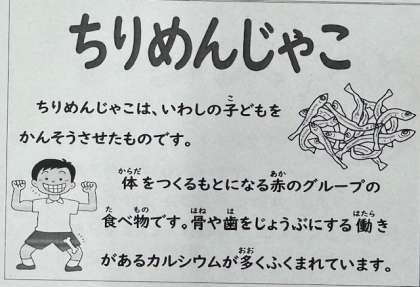 ちりめんじゃこ
ちりめんじゃこは、いわしの子どもを
かんそうさせたものです。
体をつくるもとになる赤のグループの
食べ物です。骨や歯をじょうぶにする働き
があるカルシウムが多くふくまれています。